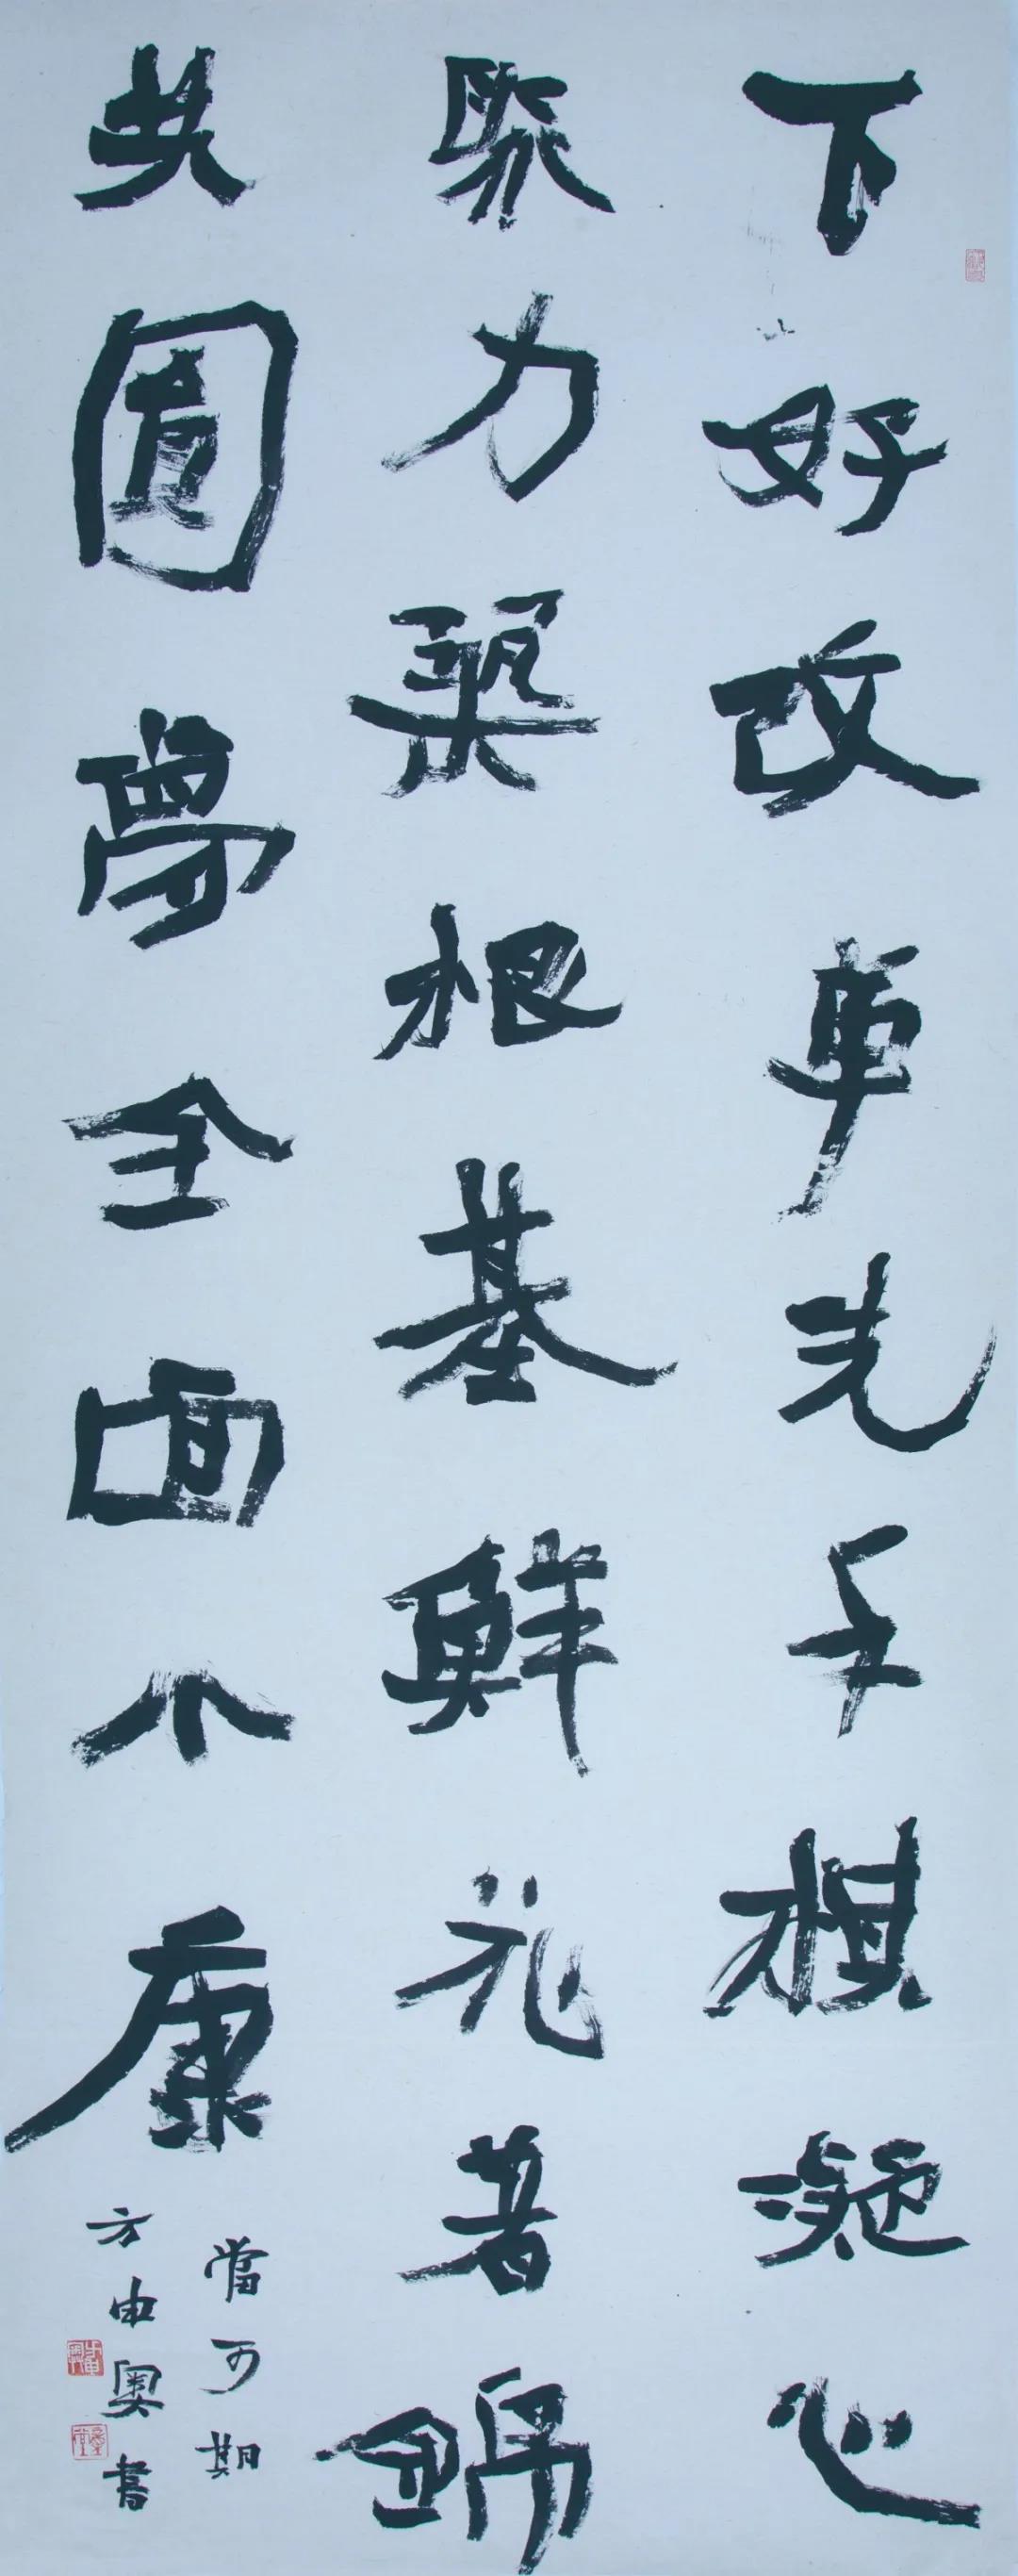 下好改革先手棋凝心
聚力築根基鮮花著錦
共圓夢全面小康
當可期
方申奧書